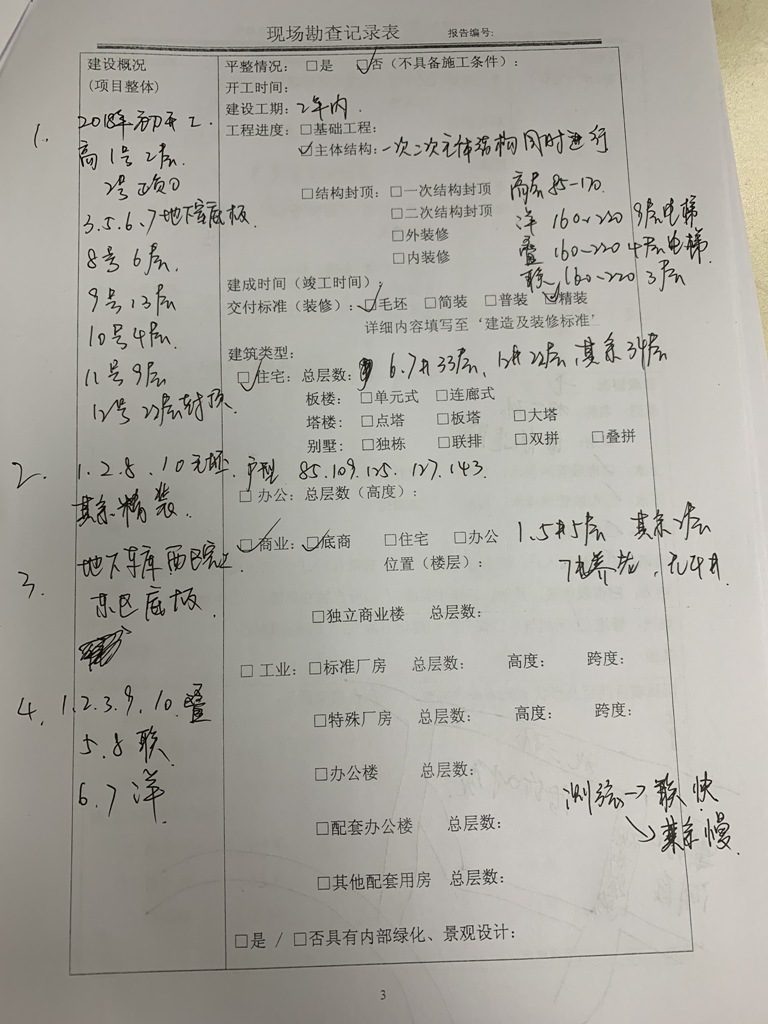 现场勘查记录表 报告编号:
建设概况
(项目整体)
1.
2018年初开工.
高1号2层.
2号正负0
3.5.6.7地下室底板.
8号6层.
9号13层
10号4层.
11号9层
12号22层封顶.
2. 1.2.8.10毛坯. 户型 85.109.125.127.143.
其余精装.
3. 地下车库西区完工
东区底板.
4. 1.2.3.9.10.叠
5.8联
6.7洋
平整情况: □是 □否(不具备施工条件):
开工时间:
建设工期: 2年内.
工程进度: □基础工程:
□主体结构: 一次二次主体结构同时进行
□结构封顶: □一次结构封顶 高层 85-170.
□二次结构封顶 洋 160~220 9层电梯
□外装修 叠 160~220 4层电梯.
□内装修 联 160~220 3层
建成时间(竣工时间):
交付标准(装修): □毛坯 □简装 □普装 □精装
详细内容填写至‘建造及装修标准’
建筑类型:
□住宅: 总层数: 6.7#33层, 12#22层, 其余34层
板楼: □单元式 □连廊式
塔楼: □点塔 □板塔 □大塔
别墅: □独栋 □联排 □双拼 □叠拼
□办公: 总层数(高度):
□商业: □底商 □住宅 □办公 1.5#5层 其余2层
位置(楼层): 7#养老, 无4#.
□独立商业楼 总层数:
□工业: □标准厂房 总层数: 高度: 跨度:
□特殊厂房 总层数: 高度: 跨度:
□办公楼 总层数:
→联 快
□配套办公楼 总层数:
↘其余慢.
□其他配套用房 总层数:
□是 / □否具有内部绿化、景观设计:
3